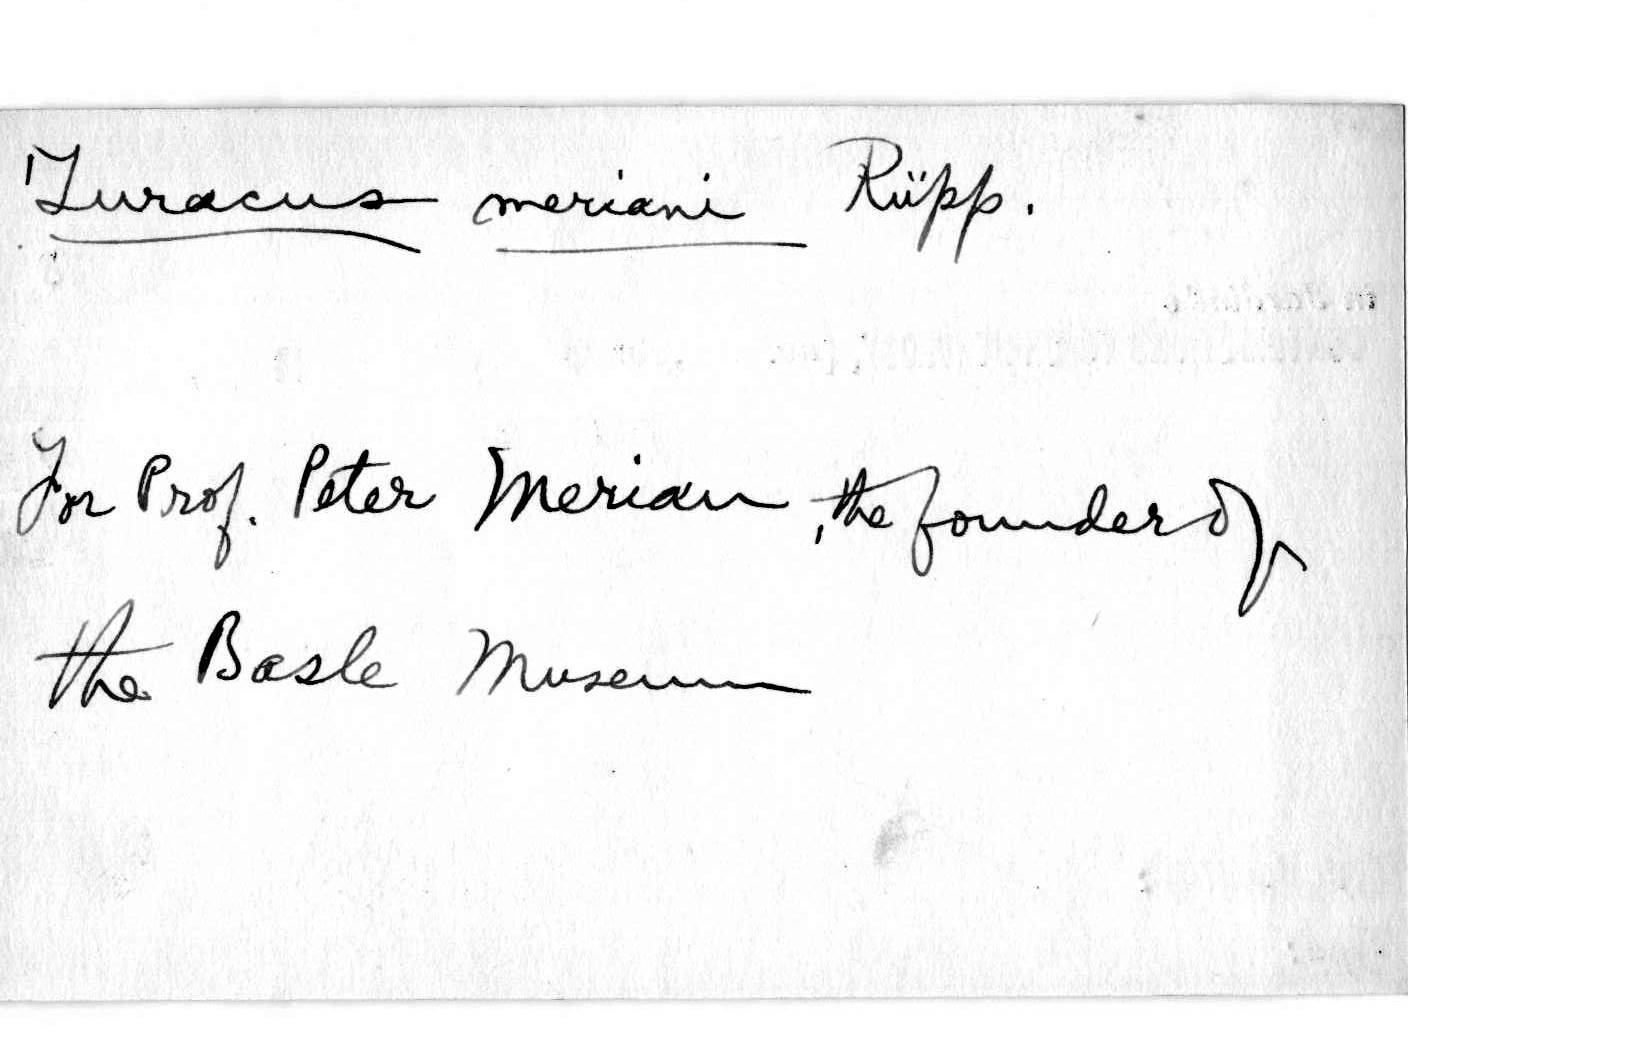 Turacus meriani Rüpp.
For Prof. Peter Merian, the founder of
the Basle Museum